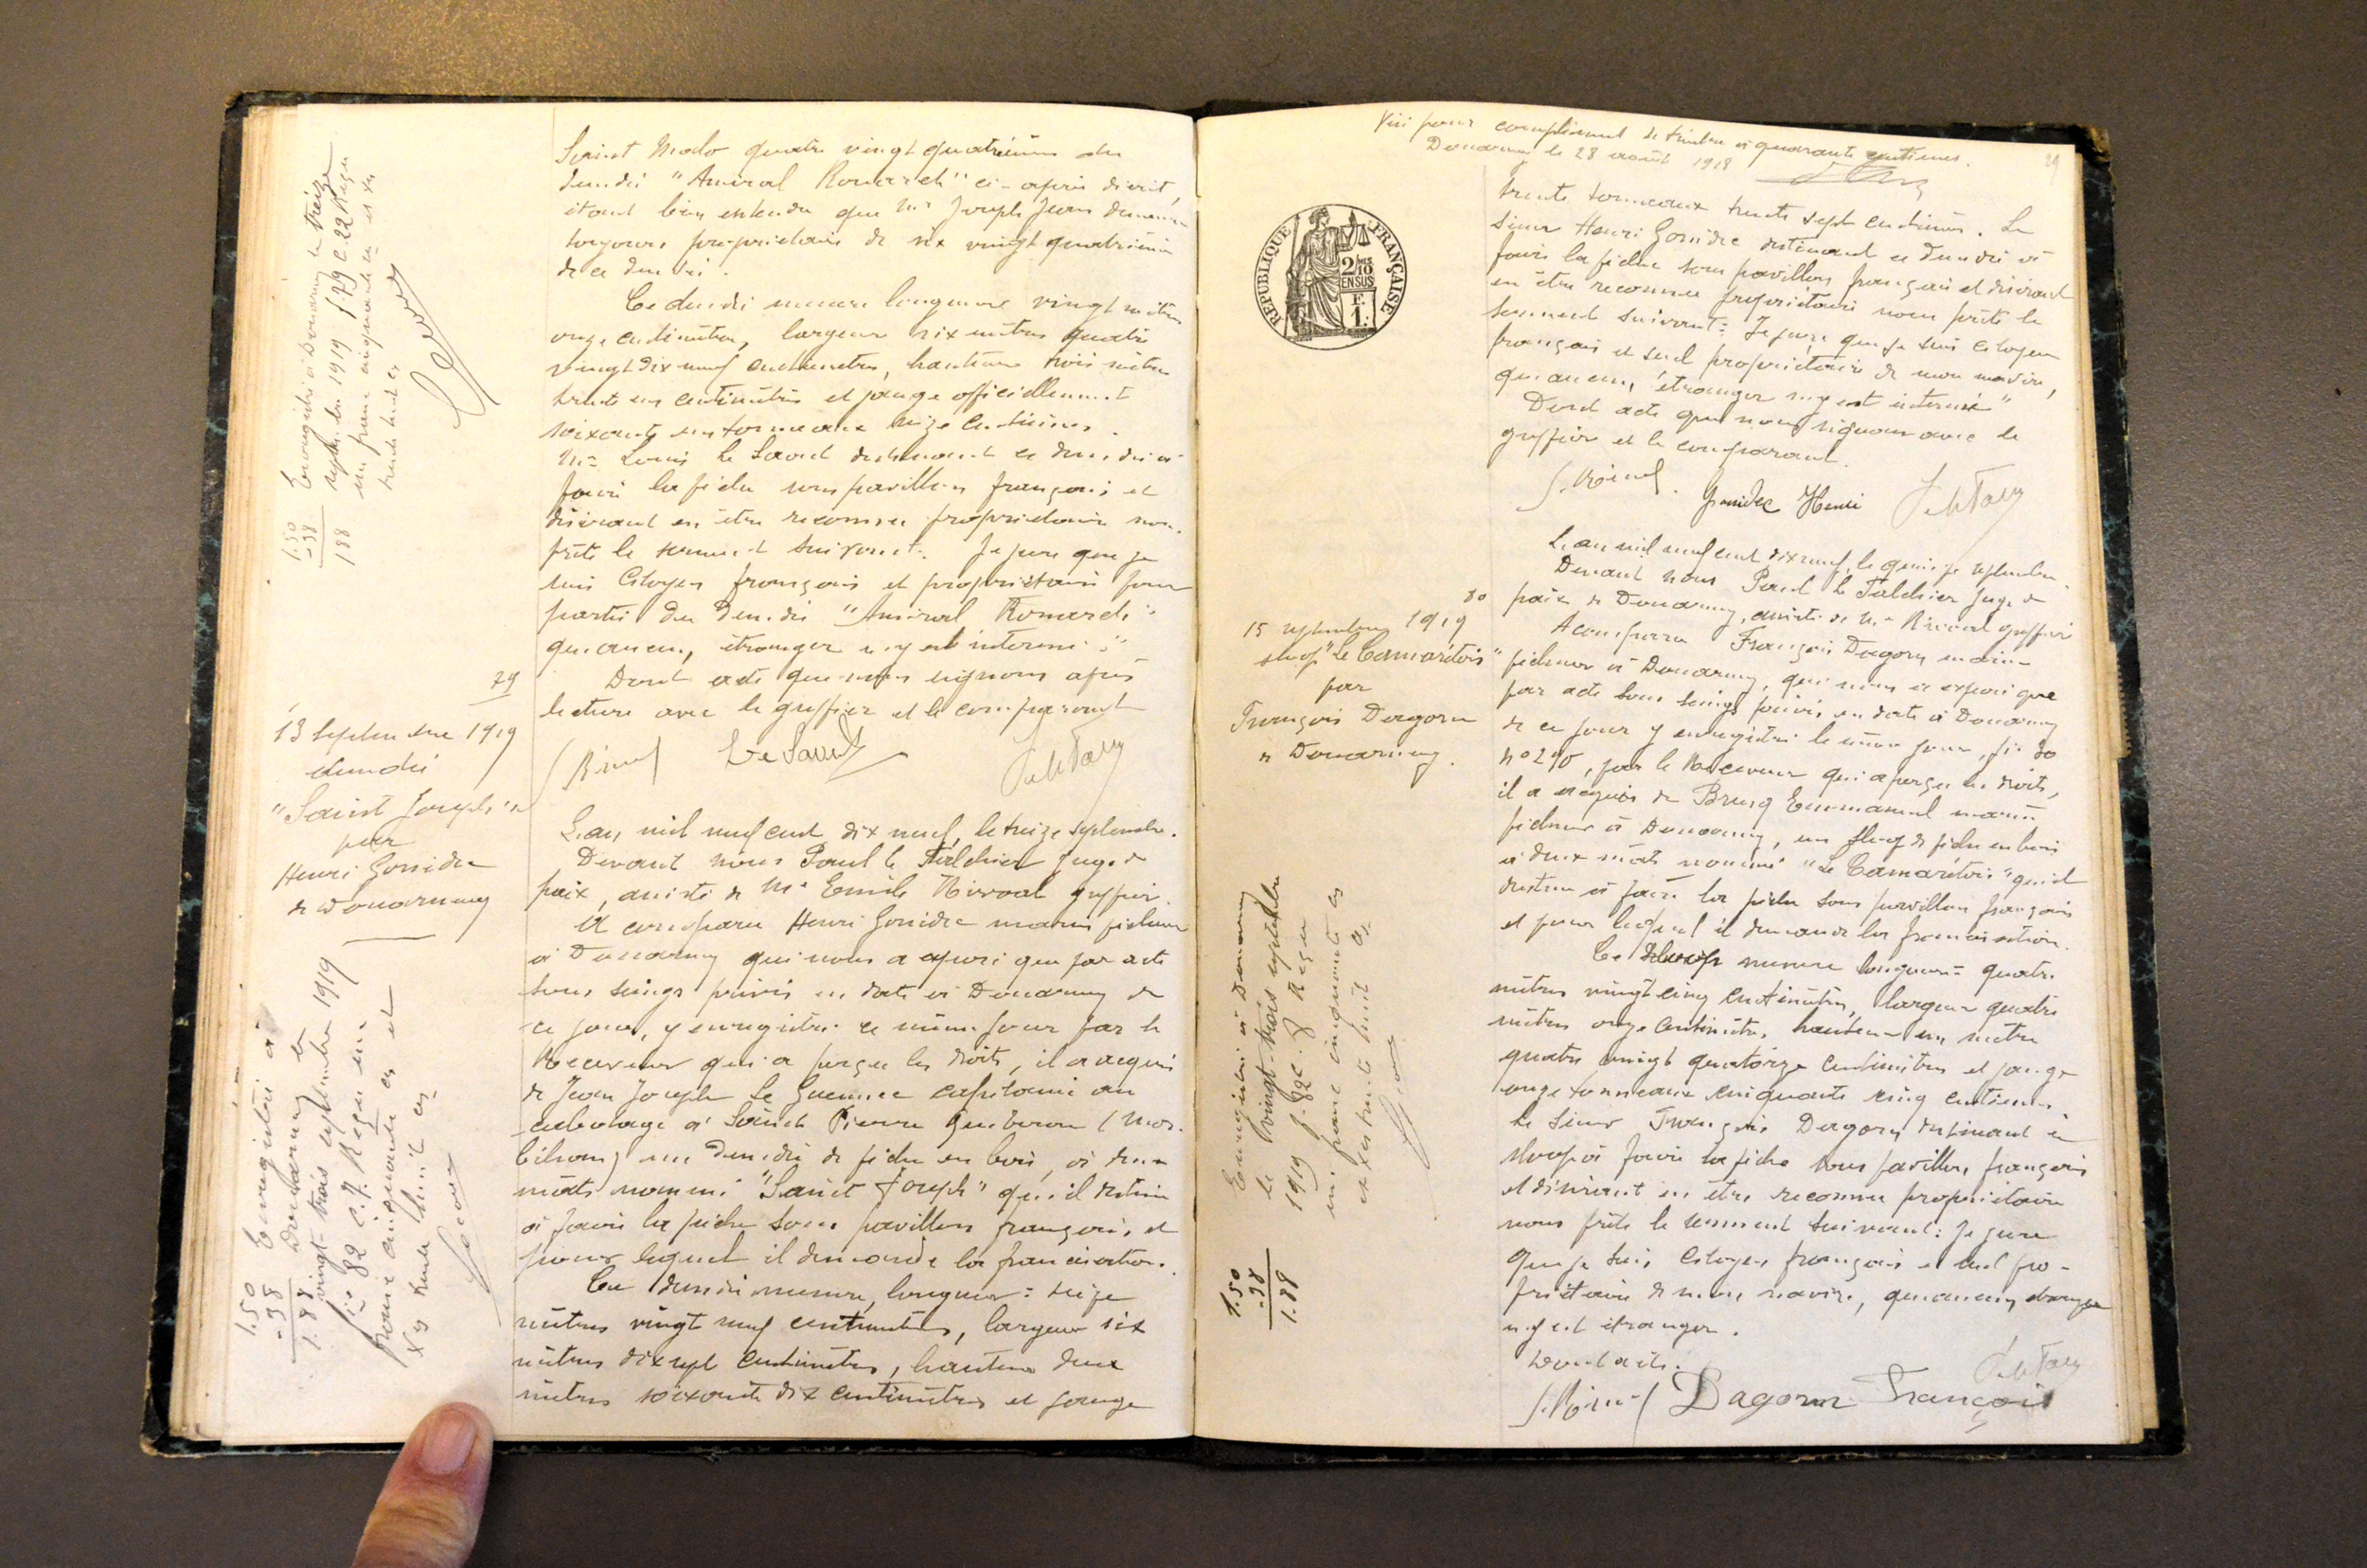 Saint Malo quatre vingt quatrièmes du
dundee "Amiral Ronarch" ci-après décrit,
étant bien entendu que Mr Joseph Jean demeure
toujours propriétaire de six vingt quatrièmes
de ce dundee.
Ce dundee mesure longueur vingt mètres
onze centimètres, largeur six mètres quatre
vingt dix neuf centimètres, hauteur trois mètres
trente un centimètres et jauge officiellement
soixante un tonneaux seize centièmes.
Mr Louis Le Saout destinant ce dundee à
faire la pêche sous pavillon français et
désirant en être reconnu propriétaire nous
prête le serment suivant: Je jure que je
suis Citoyen français et propriétaire pour
partie du Dundee "Amiral Ronarch"
qu'aucun étranger n'y est intéressé"
Dont acte que nous signons après
lecture avec le greffier et le comparant
Rivoal Le Saout
Enregistré à Douarnenez le treize
septembre 1919 f. 79 c. 22 Reçu
un franc cinquante ces et xes
trente huit ces
1.50
-38
188
79
13 Septembre 1919
dundee
"Saint Joseph"
par
Henri Gonidec
de Douarnenez
L'an mil neuf cent dix neuf, le treize septembre.
Devant nous Paul Le Falchier Juge de
paix, assisté de Mr Emile Rivoal greffier.
A comparu Henri Gonidec marin pêcheur
à Douarnenez qui nous a exposé que par acte
sous seings privés en date à Douarnenez de
ce jour, y enregistré ce même jour par le
Receveur qui a perçu les droits, il a acquis
de Jean Joseph Le Guennec capitaine au
cabotage à Saint Pierre Quiberon (Mor-
bihan) un Dundee de pêche en bois, à deux
mâts nommé "Saint Joseph" qu'il destine
à faire la pêche sous pavillon français et
pour lequel il demande la francisation.
Ce dundee mesure, longueur: seize
mètres vingt neuf centimètres, largeur six
mètres dix sept centimètres, hauteur deux
mètres soixante dix centimètres et jauge
Enregistré à
Douarnenez le
vingt-trois septembre 1919
f° 82 c. 7. Reçu un
franc cinquante ces et
xes trente huit ces
1.50
-38
1.88
Visé pour complément de timbre à quarante centimes.
Douarnenez le 28 août 1918
29
RÉPUBLIQUE FRANÇAISE
2/10 EN SUS
F. 1.
trente tonneaux trente sept centièmes. Le
sieur Henri Gonidec destinant ce dundee à
faire la pêche sous pavillon français et désirant
en être reconnu propriétaire nous prête le
serment suivant: Je jure que je suis citoyen
français et seul propriétaire de mon navire,
qu'aucun étranger n'y est intéressé"
Dont acte que nous signons avec le
greffier et le comparant.
Rivoal Gonidec Henri
80
15 septembre 1919
sloop "Le Camarétois"
par
François Dagorn
de Douarnenez.
L'an mil neuf cent dix neuf, le quinze septembre.
Devant nous Paul Le Falchier Juge de
paix de Douarnenez, assisté de Mr Rivoal greffier
A comparu François Dagorn marin
pêcheur à Douarnenez, qui nous a exposé que
par acte sous seings privés en date à Douarnenez
de ce jour y enregistré le même jour, f° 80
n° 290, par le Receveur qui a perçu les droits,
il a acquis de Brusq Emmanuel marin
pêcheur à Douarnenez, un sloop de pêche en bois
à deux mâts nommé "Le Camarétois" qu'il
destine à faire la pêche sous pavillon français
et pour lequel il demande la francisation.
Ce sloop mesure longueur: quatre
mètres vingt cinq centimètres, largeur quatre
mètres onze centimètres, hauteur un mètre
quatre vingt quatorze centimètres et jauge
onze tonneaux cinquante cinq centièmes.
Le Sieur François Dagorn destinant ce
sloop à faire la pêche sous pavillon français
et désirant en être reconnu propriétaire
nous prête le serment suivant: Je jure
que je suis Citoyen français et seul pro-
priétaire de mon navire, qu'aucun étranger
n'y est étranger.
Dont acte.
Rivoal Dagorn François
Enregistré à Douarnenez
le vingt-trois septembre
1919 f. 82 c. 8 Reçu
un franc cinquante ces
et xes trente huit ces
1.50
-38
1.88